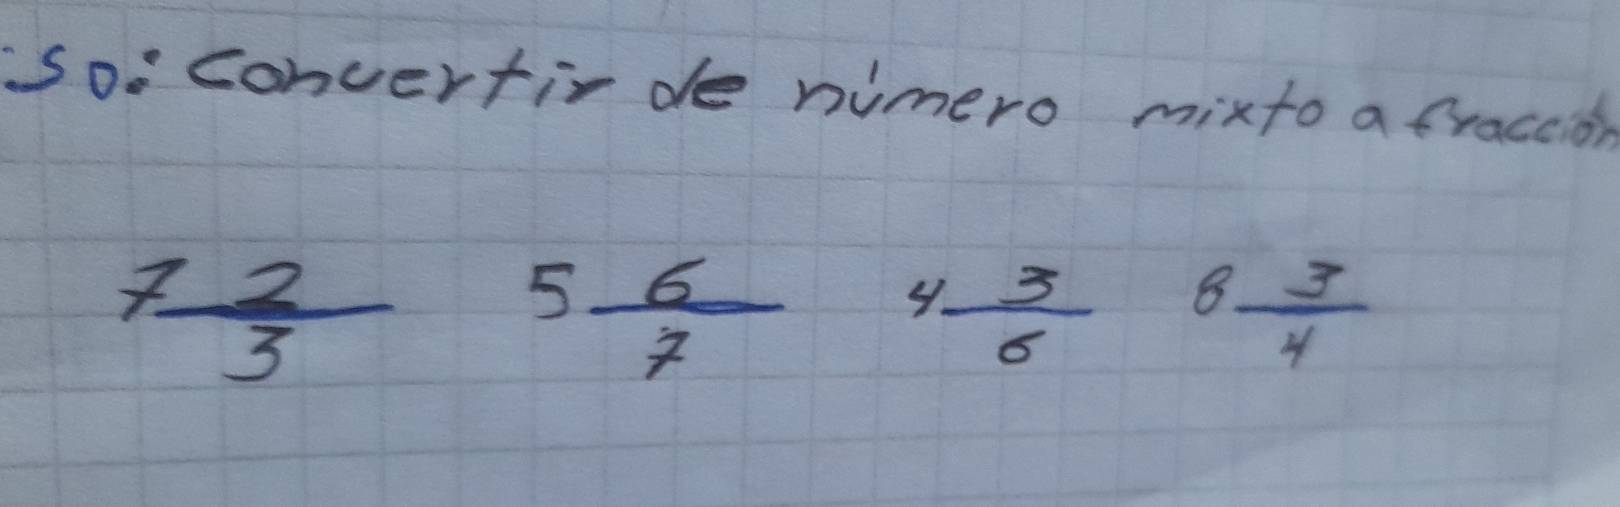 so: Convertir de número mixto a fracción
7 2/3 5 6/7 4 3/6 8 3/4